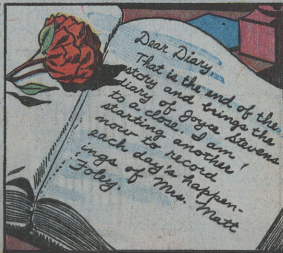 Dear Diary
That is the end of the
story and brings the
diary of Joyce Stevens
to a close. I am
starting another
now to record
each day's happen-
ings of Mrs. Matt
Foley.